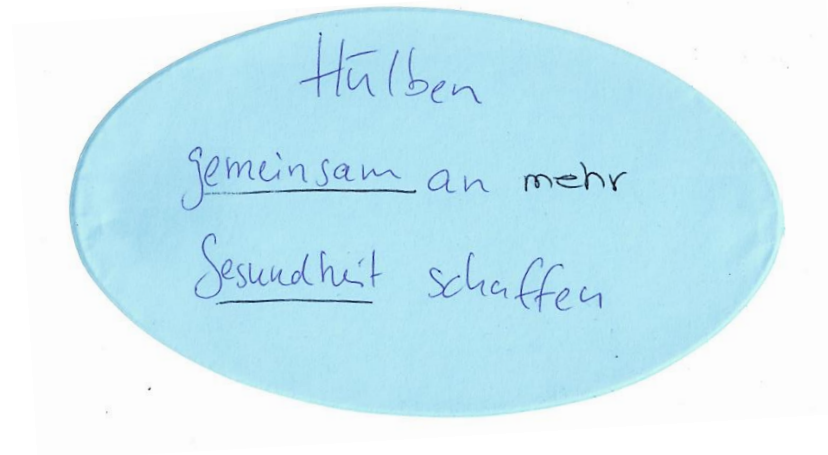 Hülben
gemeinsam an mehr
Gesundheit schaffen